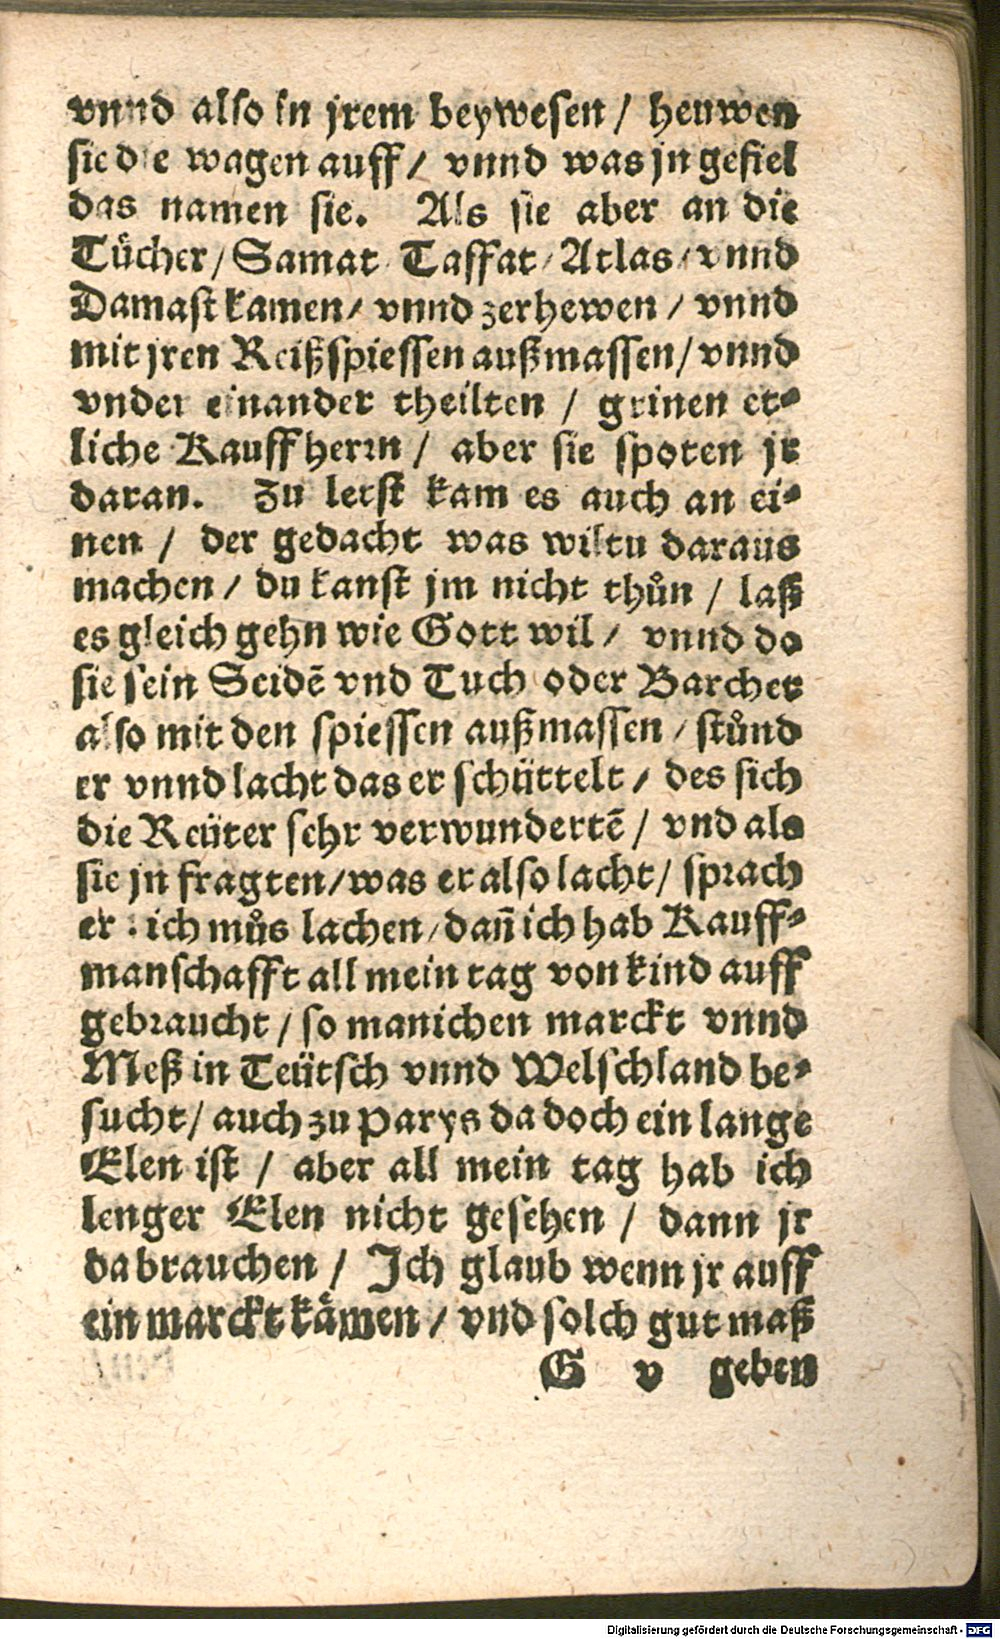 vnnd also in jrem beywesen / heuwen
sie die wagen auff / vnnd was jn gefiel
das namen sie. Als sie aber an die
Tücher / Samat / Taffat / Atlas / vnnd
Damast kamen / vnnd zerhewen / vnnd
mit jren Reißspiessen außmassen / vnnd
vnder einander theilten / grinen et⸗
liche Kauffherrn / aber sie spoten jr
daran. Zu letst kam es auch an ei⸗
nen / der gedacht was wiltu daraus
machen / du kanst jm nicht thůn / laß
es gleich gehn wie Gott wil / vnnd do
sie sein Seidē vnd Tuch oder Barchet
also mit den spiessen außmassen / stůnd
er vnnd lacht das er schüttelt / des sich
die Reüter sehr verwundertē / vnd als
sie jn fragten / was er also lacht / sprach
er : ich můs lachen / dañ ich hab Kauff⸗
manschafft all mein tag von kind auff
gebraucht / so manichen marckt vnnd
Meß in Teütsch vnnd Welschland be⸗
sucht / auch zu Parys da doch ein lange
Elen ist / aber all mein tag hab ich
lenger Elen nicht gesehen / dann jr
da brauchen / Ich glaub wenn jr auff
ein marckt kämen / vnd solch gut maß
G v geben
Digitalisierung gefördert durch die Deutsche Forschungsgemeinschaft - DFG